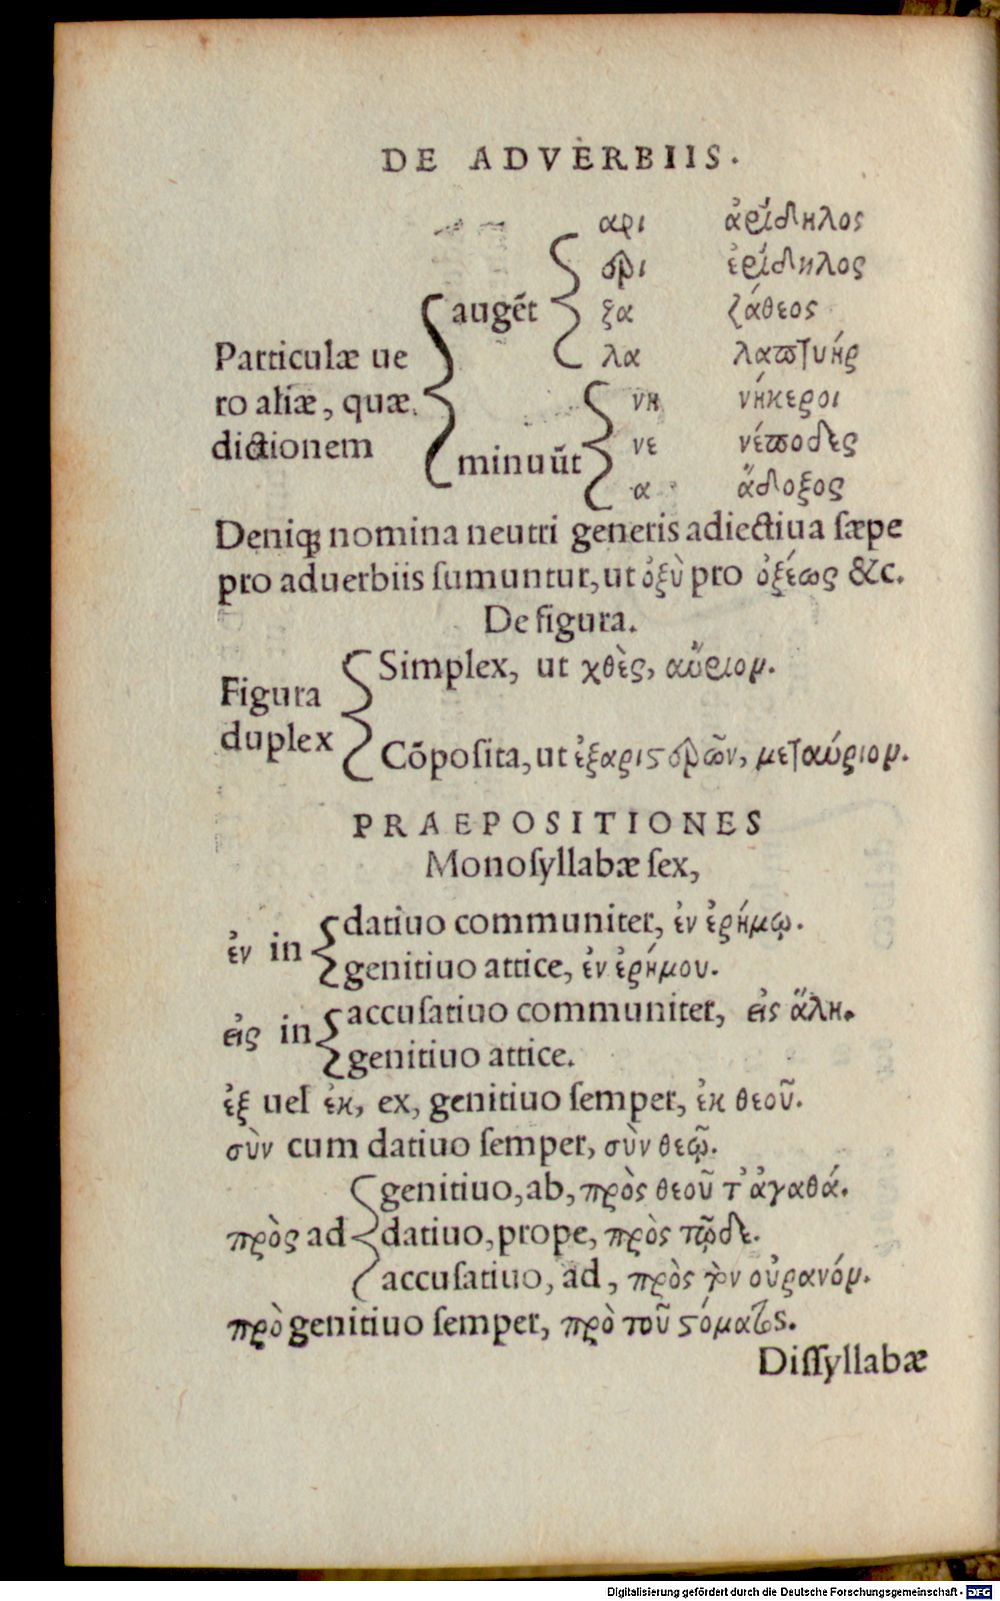 DE ADVERBIIS.
αρι ἀρίδηλος
ερι ἐρίδηλος
augēt ξα ζάθεος
Particulæ ue λα λαπτυήρ
ro aliæ, quæ νη νήκεροι
dictionem νε νέποδες
minuūt α ἄδοξος
Deniq; nomina neutri generis adiectiua sæpe
pro aduerbiis sumuntur, ut ὀξὺ pro ὀξέως &c.
De figura.
Simplex, ut χθὲς, αὔριομ.
Figura
duplex
Cōposita, ut ἐξαριςερῶν, μεταύριομ.
PRAEPOSITIONES
Monosyllabæ sex,
datiuo communiter, ἐν ἐρήμῳ.
ἐν in
genitiuo attice, ἐν ἐρήμου.
accusatiuo communiter, εἰς ἅλη.
εἰς in
genitiuo attice.
ἐξ uel ἐκ, ex, genitiuo semper, ἐκ θεοῦ.
σὺν cum datiuo semper, σὺν θεῷ.
genitiuo, ab, πρὸς θεοῦ τ' ἀγαθά.
πρὸς ad datiuo, prope, πρὸς
accusatiuo, ad, πρὸς τὸν οὐρανόμ.
πρὸ genitiuo semper, πρὸ τοῦ ςόματος.
Dissyllabæ
Digitalisierung gefördert durch die Deutsche Forschungsgemeinschaft - DFG